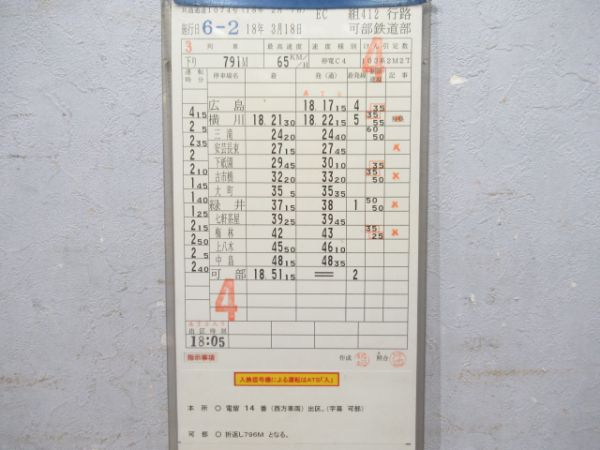 施行日 6-2 18年 3月18日 EC 組412 行路
可部鉄道部
3 列車 最高速度 速度種別 けん引定数
下り 791M 65KM/H 停電C4 103系2M2T
運転時分 停車場名 着 発(通) 着発線 制限速度 記事
ATS
広島 18.17 15 4 35
4 15
横川 18.21 30 18.22 15 5 35 55
2 5
三滝 24 20 24 40 60 50
2 35
安芸長束 27 15 27 45
2
下祇園 29 45 30 10 35
2 10
古市橋 32 20 33 20 35 50
1 45
大町 35 5 35 35
1 40
緑井 37 15 38 1 50 50
1 25
七軒茶屋 39 25 39 45
2 15
梅林 42 43 35 25
2 50
上八木 45 50 46 10
2 5
中島 48 15 48 35
2 40
可部 18.51 15 == 2
4
4
出区時刻
18:05
指示事項 作成 照合
入換信号機による運転はATS「入」
本所 ○ 電留 14 番 (西方車両) 出区。(字幕 可部)
可部 ○ 折返し796M となる。